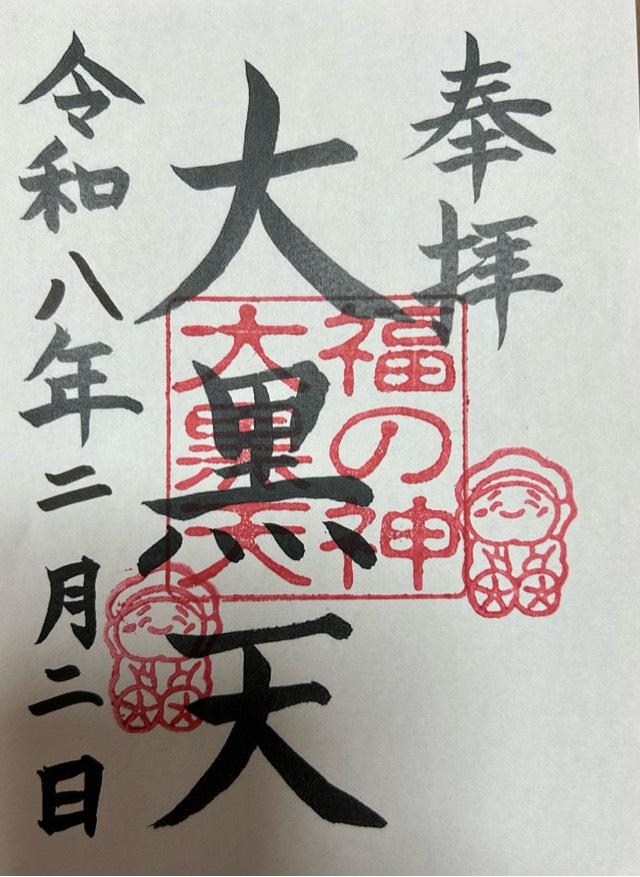 奉拝
福の神
大黒天
大黒天
令和八年二月二日